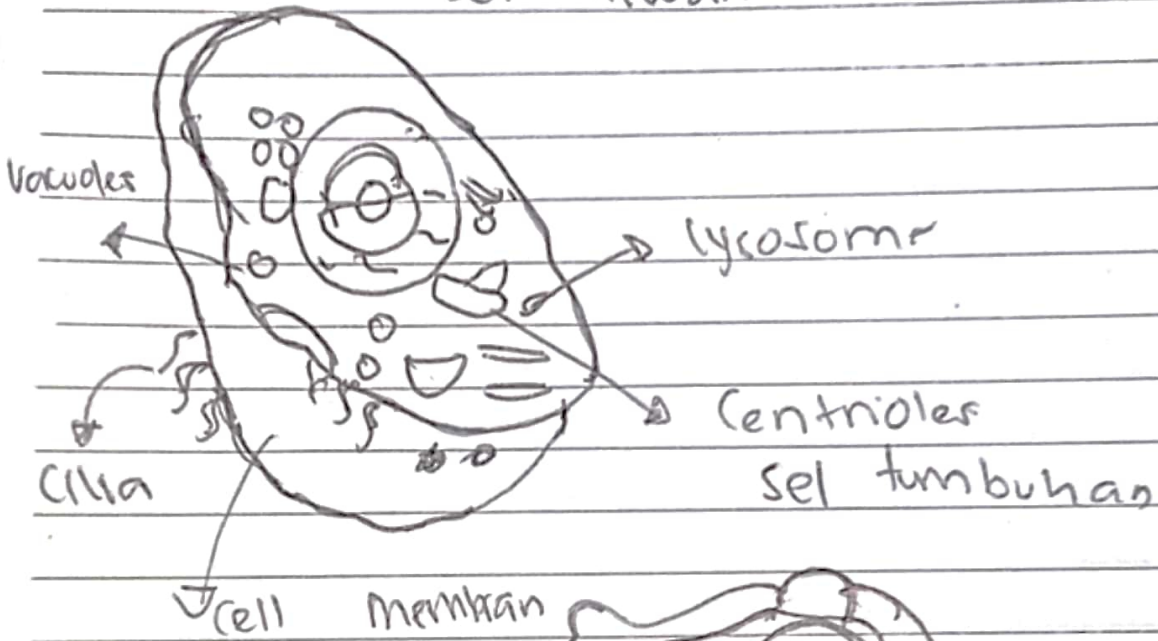 Vacuoles
Lycosome
Centrioles
Cilia
sel tumbuhan
Cell membran